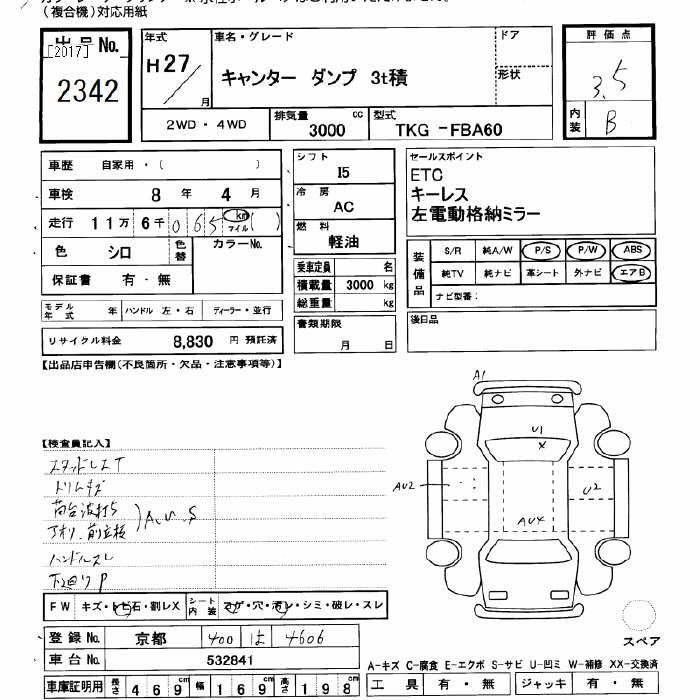 (複合機)対応用紙
出品No. [2017] 2342
年式 H27/ 月
車名・グレード キャンター ダンプ 3t積
ドア
形状
評価点 3.5
内装 B
2WD・4WD
排気量 3000 cc
型式 TKG-FBA60
車歴 自家用・( )
車検 8年 4月
走行 11万 6千 065 km マイル ( )
色 シロ 色替 カラーNo.
保証書 有・無
モデル年式 年 ハンドル 左・右 ディーラー・並行
リサイクル料金 8,830 円 預託済
シフト I5
冷房 AC
燃料 軽油
乗車定員 名
積載量 3000 kg
総重量 kg
書類期限
月 日
セールスポイント
ETC
キーレス
左電動格納ミラー
装備品 S/R 純A/W P/S P/W ABS
純TV 純ナビ 革シート 外ナビ エアB
ナビ型番:
後日品
【出品店申告欄(不良箇所・欠品・注意事項等)】
【検査員記入】
スタッドレスT
トリムキズ
荷台波打ち
アオリ.前立板
)A.U.S
ハンドルスレ
下廻りP
A1
U1
X
AU2
U2
AU4
FW キズ・トビ石・割レX
シート内装 コゲ・穴・汚レ・シミ・破レ・スレ
登録No. 京都 400 は 4606
車台No. 532841
車庫証明用 長さ 469cm 幅 169cm 高さ 198cm
スペア
A-キズ C-腐食 E-エクボ S-サビ U-凹ミ W-補修 XX-交換済
工具 有・無 ジャッキ 有・無